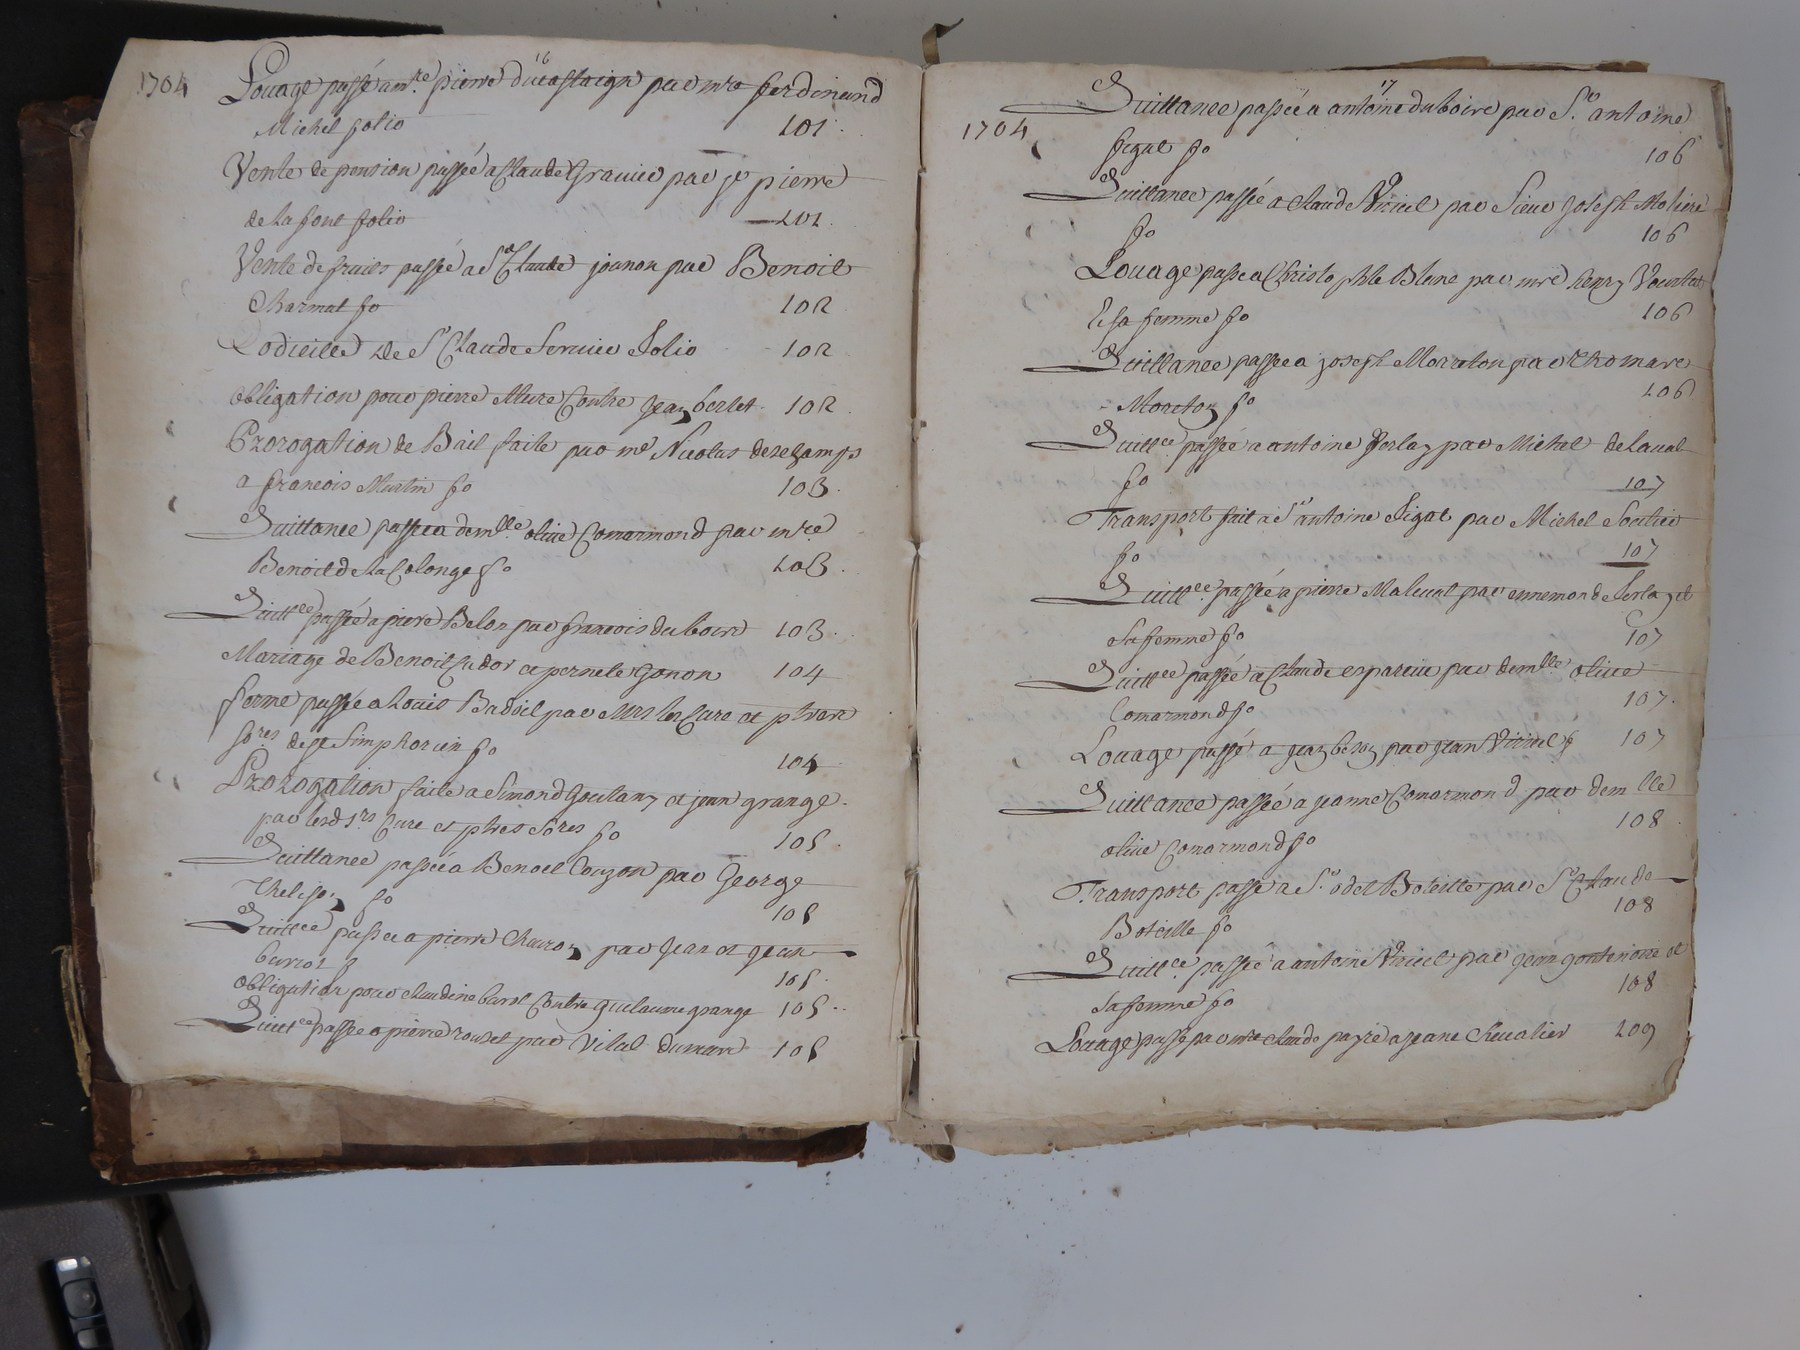 16
1704
Louage passé a mre pierre ducastaign par mre ferdinand
Michel folio 101
Vente de pension passée a Claude Gravier par sr pierre
de la font folio 101
Vente de fruits passée a Sr Claude jounon par Benoit
Charmat fo 102
Codicille de Sr Claude Servier folio 102
Obligation pour pierre Mure Contre jean berlet 102
Prorogation de Bail faite par mre Nicolas deschamps
a francois Martin fo 103
Quittance passée a demlle olive Comarmond par mre
Benoit de la Colonge fo 103
Quittce passée a piere Belon par francois duboire 103
Mariage de Benoit Sudor et pernete Gonon 104
ferme passée a Louis Badoil par Mrs les Cure et pbres
sores de st Simphorien fo 104
Prorogation faite a Simond Goutany et jean grange
par lesd srs Cure et pbres sores fo 105
Quittance passée a Benoit Couzon par George
Thelison fo 105
Quittce passée a pierre Charoy par Jean et jean
barcot f 105
Obligation pour claudine barot Contre guilaume grange 105
Quittce passée a pierre rouset par Vital dumont 105
17
1704
Quittance passée a antoine duboire par Sr antoine
figat fo 106
Quittance passée a Claude Viricel par Sieur joseph Moliere
fo 106
Louage passé a Christophle Blanc par mre henry Vournat
& sa femme fo 106
Quittance passée a joseph Morreton par thomare
Moreton fo 106
Quittce passée a antoine ferlay par Michel de Laval
fo 107
Transport fait a Sr antoine figat par Michel Soulier
fo 107
Quittce passée a pierre Maleval par ennemond ferlay et
sa femme fo 107
Quittce passée a Claude esparcieu par demlle olive
Comarmond fo 107
Louage passé a jean beson par jean Viricel f 107
Quittance passée a jeanne Comarmond par demlle
olive Comarmond fo 108
Transport passé a Sr odet Boteille par Sr Claude
Boteille fo 108
Quittce passée a antoine Viricel par jean gontenoire et
sa femme fo 108
Louage passé par mre claude payre a jeane Chevalier 109